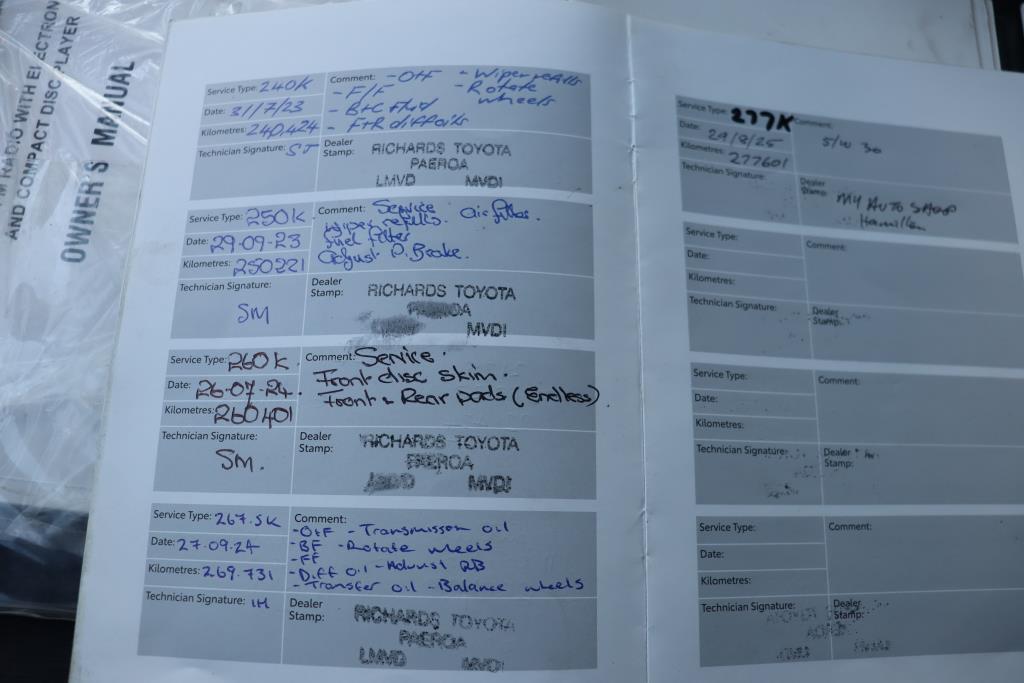 M RADIO WITH ELECTRON
AND COMPACT DISC PLAYER
OWNER'S MANUAL
Service Type: 240K
Comment: - O+F - Wiper refills
- F/F - Rotate
wheels
Date: 31/7/23
- B+C fluid
Kilometres: 240,424
- F+R diff oils
Technician Signature: ST
Dealer
Stamp:
RICHARDS TOYOTA
PAEROA
LMVD MVDI
Service Type: 250K
Comment: Service Air filter.
Wiper refills
Date: 29-09-23
fuel filter
Kilometres: 250221
adjust P. Brake.
Technician Signature:
SM
Dealer
Stamp:
RICHARDS TOYOTA
PAEROA
MVDI
Service Type: 260K.
Comment: Service.
Date: 26-07-24.
Front disc skim.
Kilometres: 260401
Front & Rear pads (Endless).
Technician Signature:
SM.
Dealer
Stamp:
RICHARDS TOYOTA
PAEROA
LMVD MVDI
Service Type: 267.5K
Comment:
- O+F - Transmisson oil
Date: 27.09.24
- BF - Rotate wheels
- FF
Kilometres: 269.731
- Diff oil - Adjust PB
- Transfer oil - Balance wheels
Technician Signature: IH
Dealer
Stamp:
RICHARDS TOYOTA
PAEROA
LMVD MVDI
Service Type: 277K
Comment:
Date: 29/8/25
5/W 30
Kilometres: 277601
Technician Signature:
Dealer
Stamp: MY AUTO SHOP
Hamilton
Service Type:
Comment:
Date:
Kilometres:
Technician Signature:
Dealer
Stamp:
Service Type:
Comment:
Date:
Kilometres:
Technician Signature:
Dealer
Stamp:
Service Type:
Comment:
Date:
Kilometres:
Technician Signature:
Dealer
Stamp: